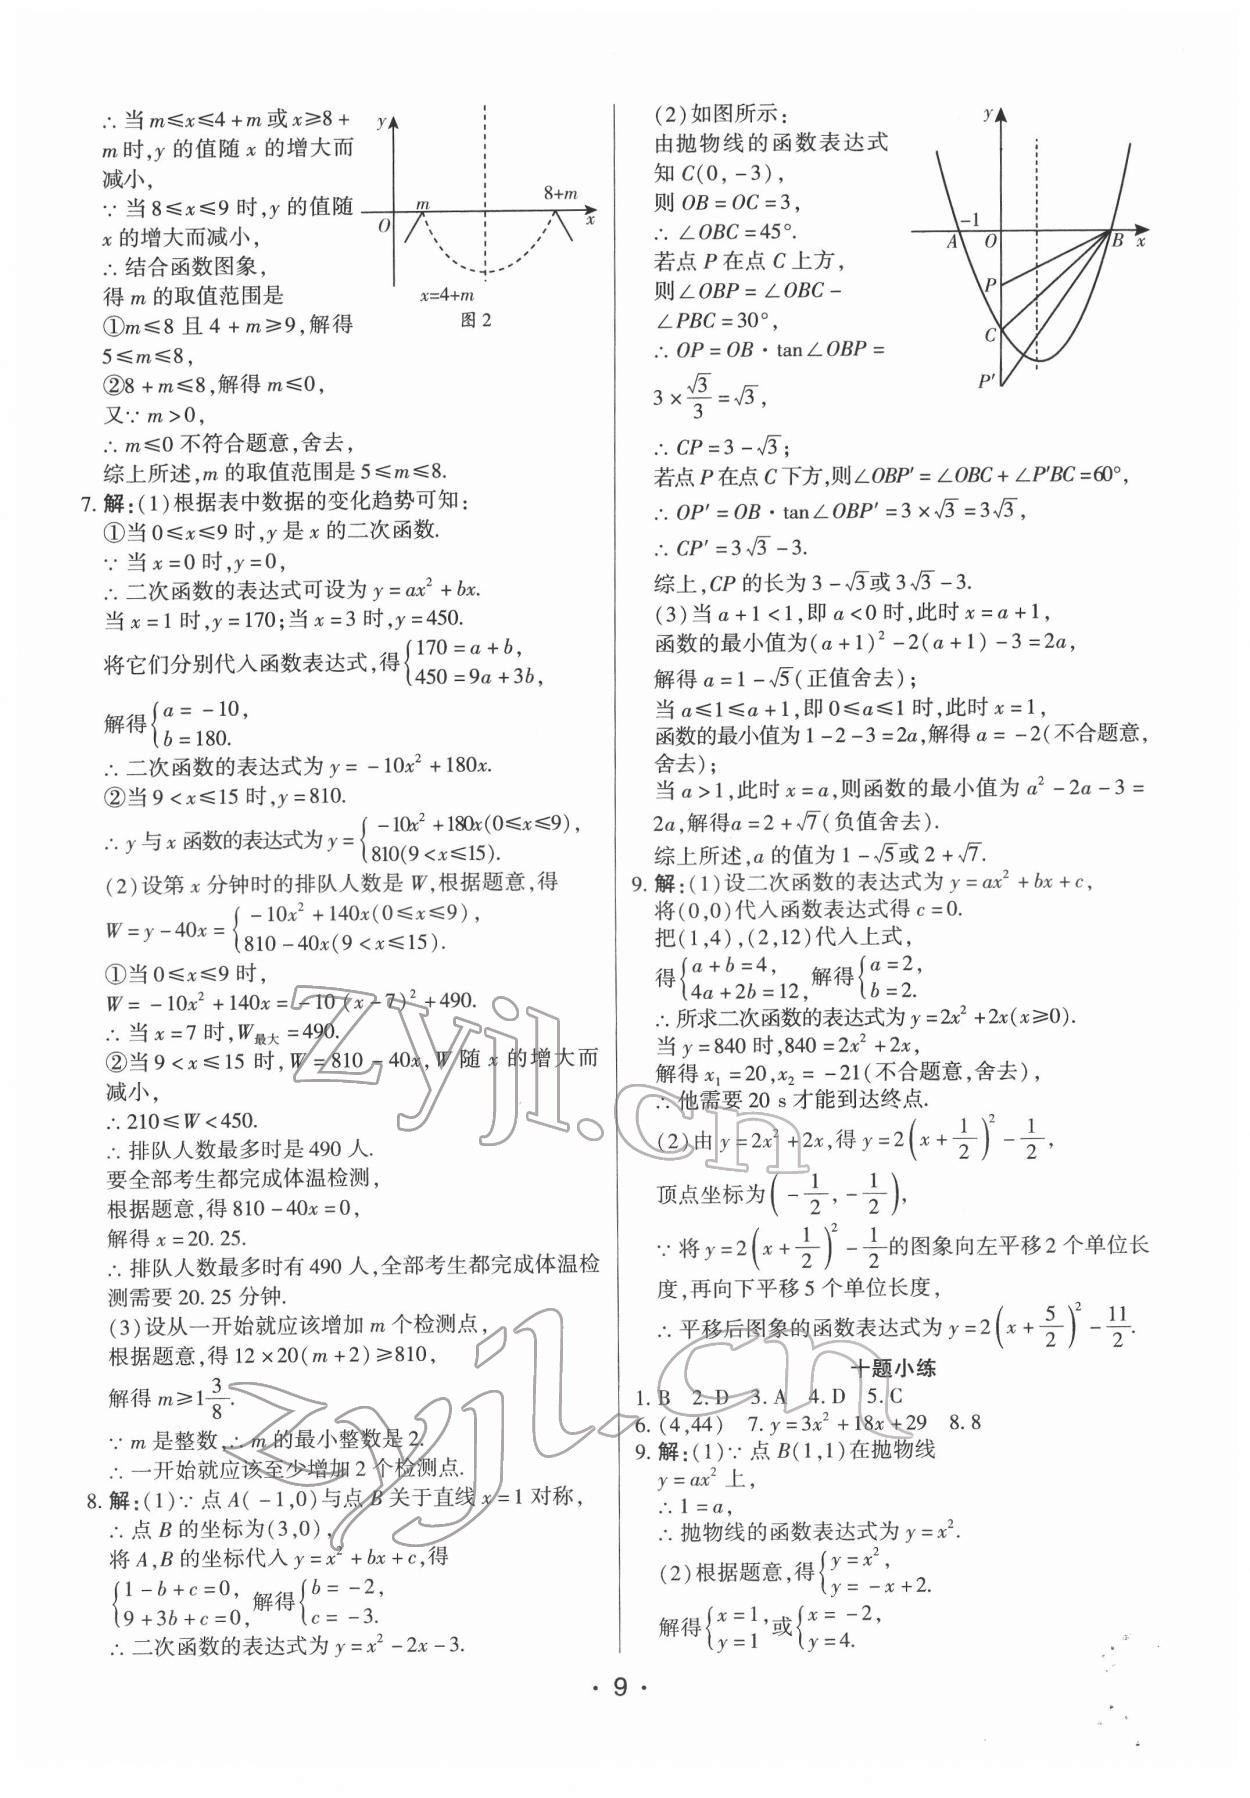 ∴ 当 m≤x≤4+m 或 x≥8+
m 时,y 的值随 x 的增大而
减小,
∵ 当 8≤x≤9 时,y 的值随
x 的增大而减小,
∴ 结合函数图象,
得 m 的取值范围是
①m≤8 且 4+m≥9,解得
5≤m≤8,
②8+m≤8,解得 m≤0,
又∵ m>0,
∴ m≤0 不符合题意,舍去,
综上所述,m 的取值范围是 5≤m≤8.
y
m
8+m
O
x
x=4+m
图 2
7. 解:(1)根据表中数据的变化趋势可知:
①当 0≤x≤9 时,y 是 x 的二次函数.
∵ 当 x=0 时,y=0,
∴ 二次函数的表达式可设为 y=ax²+bx.
当 x=1 时,y=170;当 x=3 时,y=450.
将它们分别代入函数表达式,得{170=a+b,
450=9a+3b,
解得{a=-10,
b=180.
∴ 二次函数的表达式为 y=-10x²+180x.
②当 9<x≤15 时,y=810.
∴ y 与 x 函数的表达式为 y={-10x²+180x(0≤x≤9),
810(9<x≤15).
(2)设第 x 分钟时的排队人数是 W,根据题意,得
W=y-40x={-10x²+140x(0≤x≤9),
810-40x(9<x≤15).
①当 0≤x≤9 时,
W=-10x²+140x=-10(x-7)²+490.
∴ 当 x=7 时,W最大=490.
②当 9<x≤15 时,W=810-40x,W 随 x 的增大而
减小,
∴ 210≤W<450.
∴ 排队人数最多时是 490 人.
要全部考生都完成体温检测,
根据题意,得 810-40x=0,
解得 x=20.25.
∴ 排队人数最多时有 490 人,全部考生都完成体温检
测需要 20.25 分钟.
(3)设从一开始就应该增加 m 个检测点,
根据题意,得 12×20(m+2)≥810,
解得 m≥1 3/8.
∵ m 是整数,∴ m 的最小整数是 2.
∴ 一开始就应该至少增加 2 个检测点.
8. 解:(1)∵ 点 A(-1,0)与点 B 关于直线 x=1 对称,
∴ 点 B 的坐标为(3,0),
将 A,B 的坐标代入 y=x²+bx+c,得
{1-b+c=0,
9+3b+c=0, 解得{b=-2,
c=-3.
∴ 二次函数的表达式为 y=x²-2x-3.
(2)如图所示:
由抛物线的函数表达式
知 C(0,-3),
则 OB=OC=3,
∴ ∠OBC=45°.
若点 P 在点 C 上方,
则∠OBP=∠OBC-
∠PBC=30°,
∴ OP=OB·tan∠OBP=
3×√3/3=√3,
y
-1
A
O
B
x
P
C
P'
∴ CP=3-√3;
若点 P 在点 C 下方,则∠OBP'=∠OBC+∠P'BC=60°,
∴ OP'=OB·tan∠OBP'=3×√3=3√3,
∴ CP'=3√3-3.
综上,CP 的长为 3-√3或 3√3-3.
(3)当 a+1<1,即 a<0 时,此时 x=a+1,
函数的最小值为(a+1)²-2(a+1)-3=2a,
解得 a=1-√5(正值舍去);
当 a≤1≤a+1,即 0≤a≤1 时,此时 x=1,
函数的最小值为 1-2-3=2a,解得 a=-2(不合题意,
舍去);
当 a>1,此时 x=a,则函数的最小值为 a²-2a-3=
2a,解得a=2+√7(负值舍去).
综上所述,a 的值为 1-√5或 2+√7.
9. 解:(1)设二次函数的表达式为 y=ax²+bx+c,
将(0,0)代入函数表达式得 c=0.
把(1,4),(2,12)代入上式,
得{a+b=4,
4a+2b=12, 解得{a=2,
b=2.
∴ 所求二次函数的表达式为 y=2x²+2x(x≥0).
当 y=840 时,840=2x²+2x,
解得 x₁=20,x₂=-21(不合题意,舍去),
∴ 他需要 20 s 才能到达终点.
(2)由 y=2x²+2x,得 y=2(x+1/2)²-1/2,
顶点坐标为(-1/2,-1/2),
∵ 将 y=2(x+1/2)²-1/2的图象向左平移 2 个单位长
度,再向下平移 5 个单位长度,
∴ 平移后图象的函数表达式为 y=2(x+5/2)²-11/2.
十题小练
1. B 2. D 3. A 4. D 5. C
6. (4,44) 7. y=3x²+18x+29 8. 8
9. 解:(1)∵ 点 B(1,1)在抛物线
y=ax² 上,
∴ 1=a,
∴ 抛物线的函数表达式为 y=x².
(2)根据题意,得{y=x²,
y=-x+2.
解得{x=1,
y=1 或{x=-2,
y=4.
· 9 ·
zyjl.cn
zyjl.cn